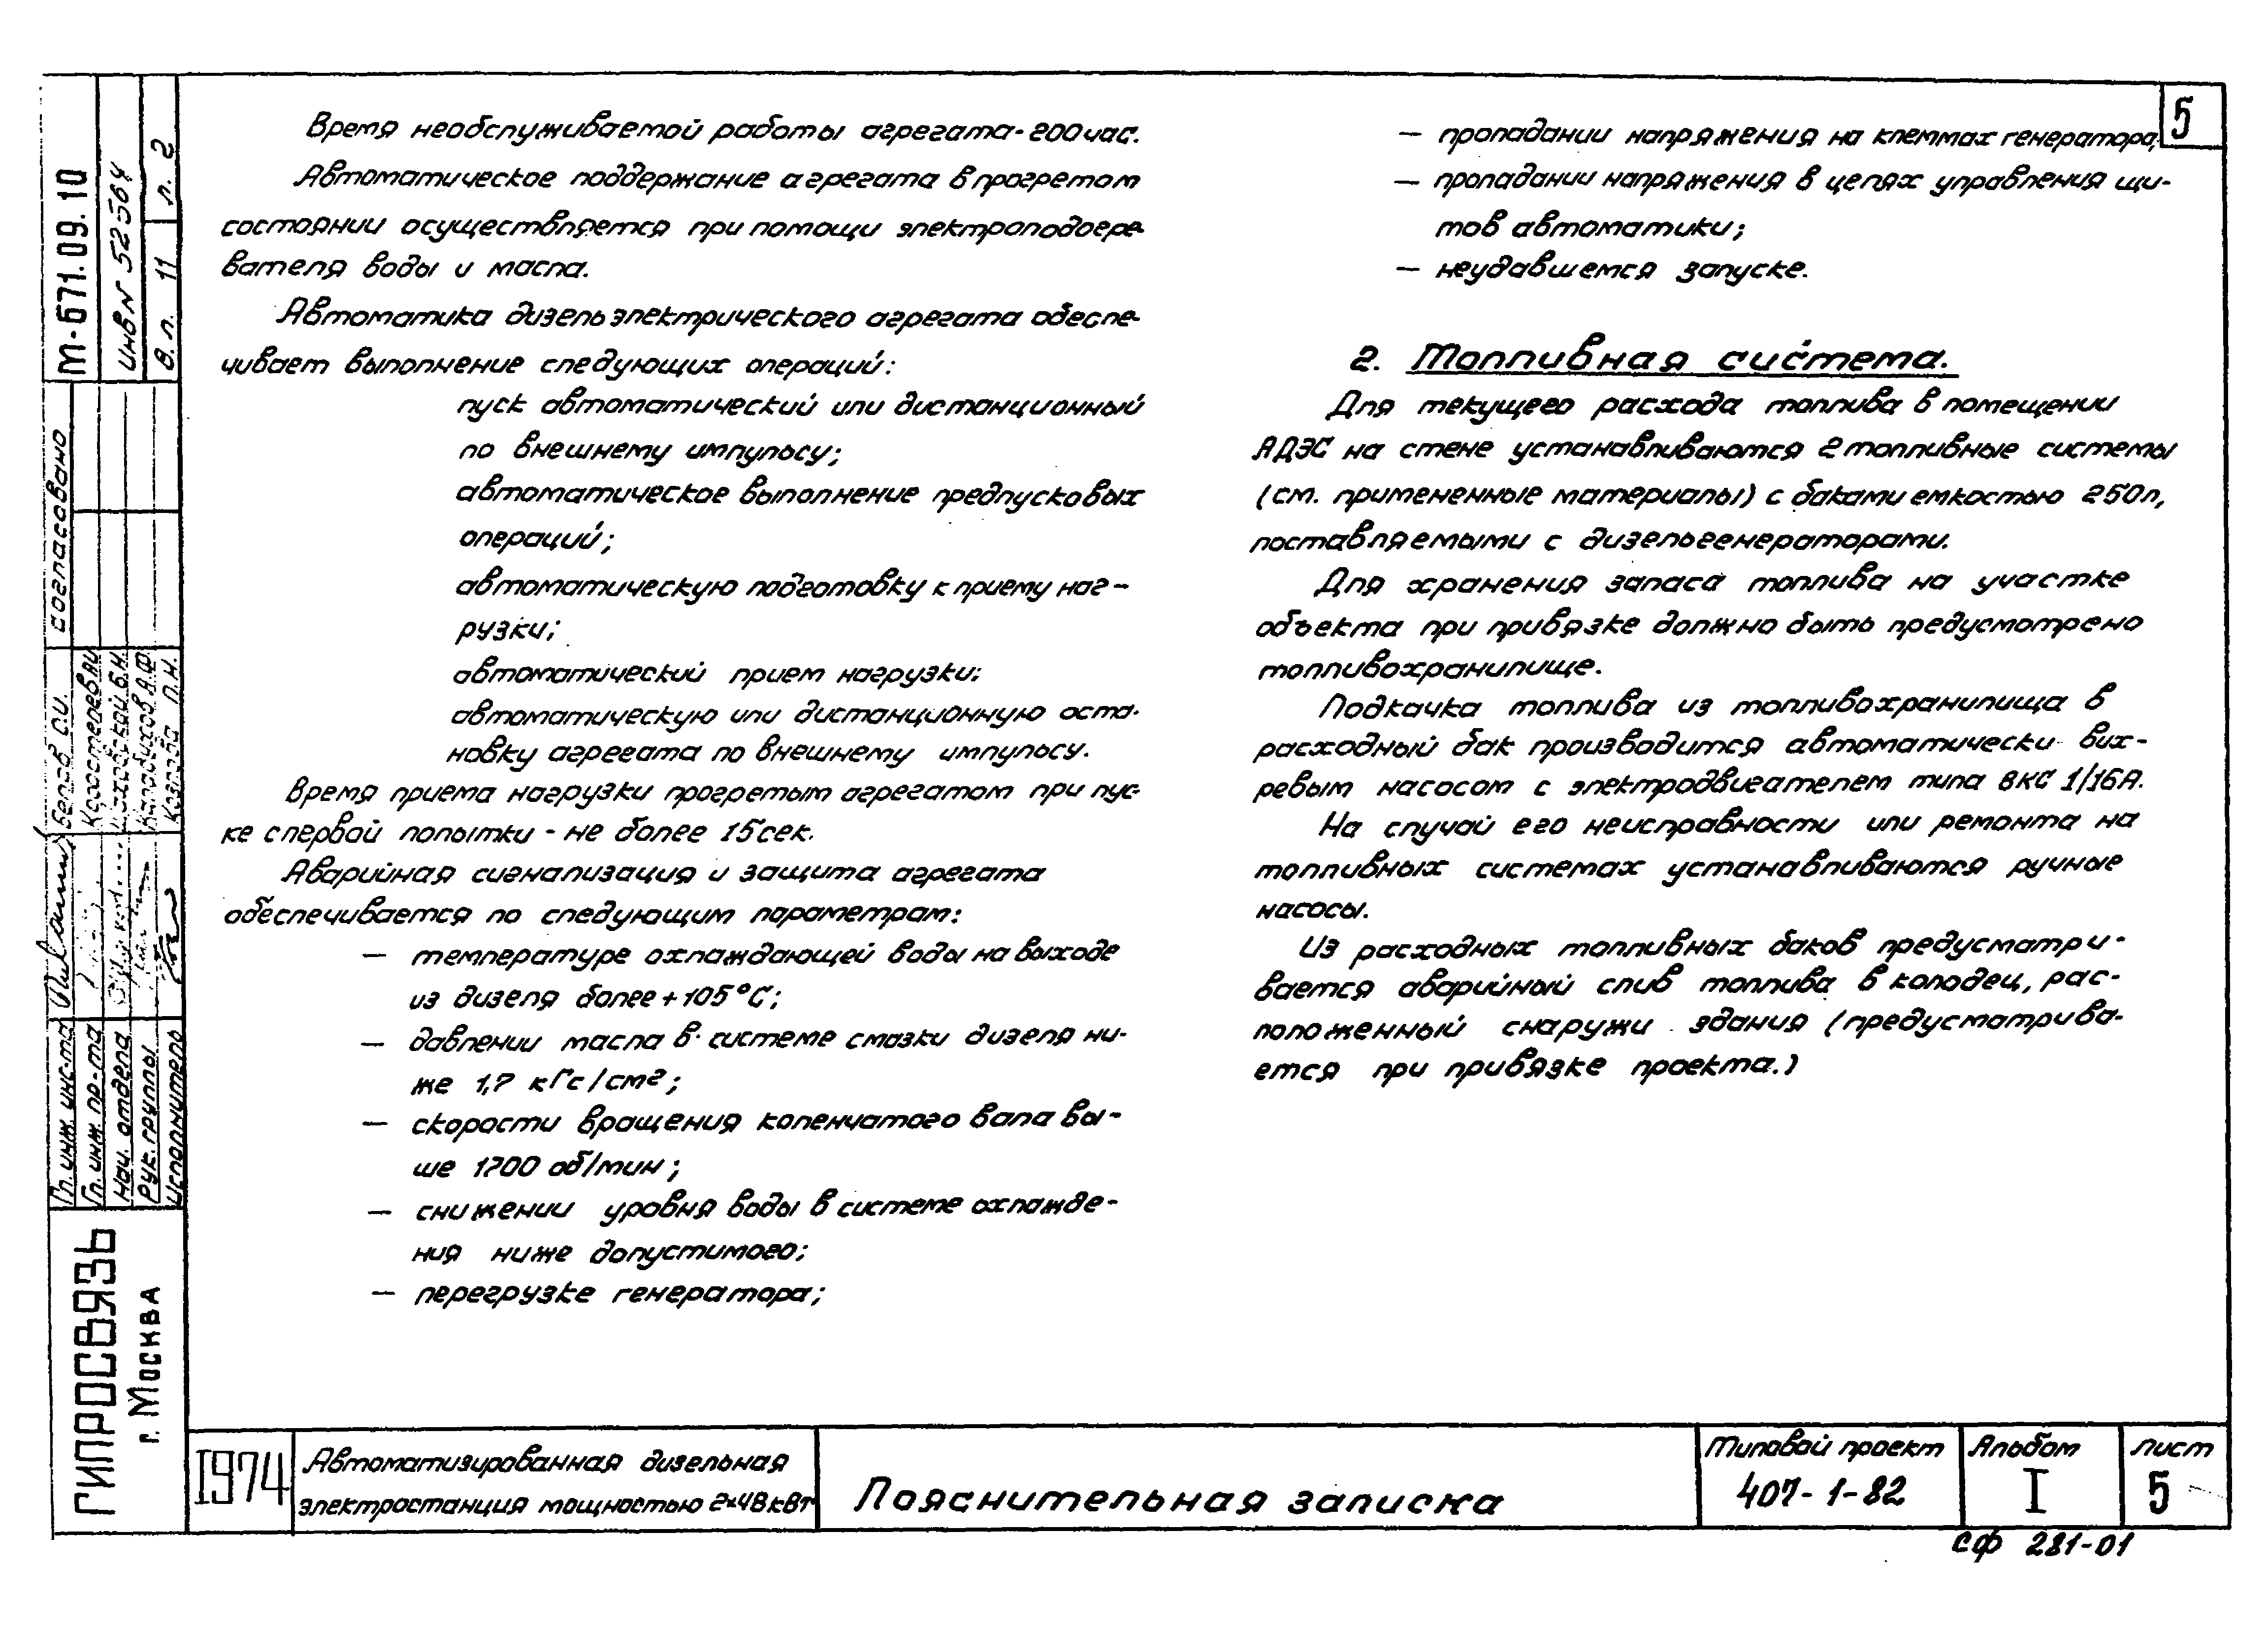 5
Время необслуживаемой работы агрегата-200час.
Автоматическое поддержание агрегата в прогретом
состоянии осуществляется при помощи электроподогре-
вателя воды и масла.
Автоматика дизельэлектрического агрегата обеспе-
чивает выполнение следующих операций:
пуск автоматический или дистанционный
по внешнему импульсу;
автоматическое выполнение предпусковых
операций;
автоматическую подготовку к приему наг-
рузки;
автоматический прием нагрузки;
автоматическую или дистанционную оста-
новку агрегата по внешнему импульсу.
Время приема нагрузки прогретым агрегатом при пус-
ке с первой попытки - не более 15 сек.
Аварийная сигнализация и защита агрегата
обеспечивается по следующим параметрам:
— температуре охлаждающей воды на выходе
из дизеля более +105°С;
— давлении масла в системе смазки дизеля ни-
же 1,7 кГс/см2;
— скорости вращения коленчатого вала вы-
ше 1700 об/мин;
— снижении уровня воды в системе охлажде-
ния ниже допустимого;
— перегрузке генератора;
— пропадании напряжения на клеммах генератора;
— пропадании напряжения в цепях управления щи-
тов автоматики;
— неудавшемся запуске.
2. Топливная система.
Для текущего расхода топлива в помещении
АДЭС на стене устанавливаются 2 топливные системы
(см. примененные материалы) с баками емкостью 250л,
поставляемыми с дизельгенераторами.
Для хранения запаса топлива на участке
объекта при привязке должно быть предусмотрено
топливохранилище.
Подкачка топлива из топливохранилища в
расходный бак производится автоматически вих-
ревым насосом с электродвигателем типа ВКС 1/16А.
На случай его неисправности или ремонта на
топливных системах устанавливаются ручные
насосы.
Из расходных топливных баков предусматри-
вается аварийный слив топлива в колодец, рас-
положенный снаружи здания (предусматрива-
ется при привязке проекта.)
М-671.09.10
инв N 52564
в.л. 11 л. 2
согласовано
Гл. инж. инс-та Белов С.И.
Гл. инж. пр-та
Нач. отдела
Рук. группы
Исполнитель Козлова Л.Н.
ГИПРОСВЯЗЬ
г. Москва
1974
Автоматизированная дизельная
электростанция мощностью 2×48 кВт
Пояснительная записка
Типовой проект
407-1-82
Альбом
I
лист
5
СФ 281-01